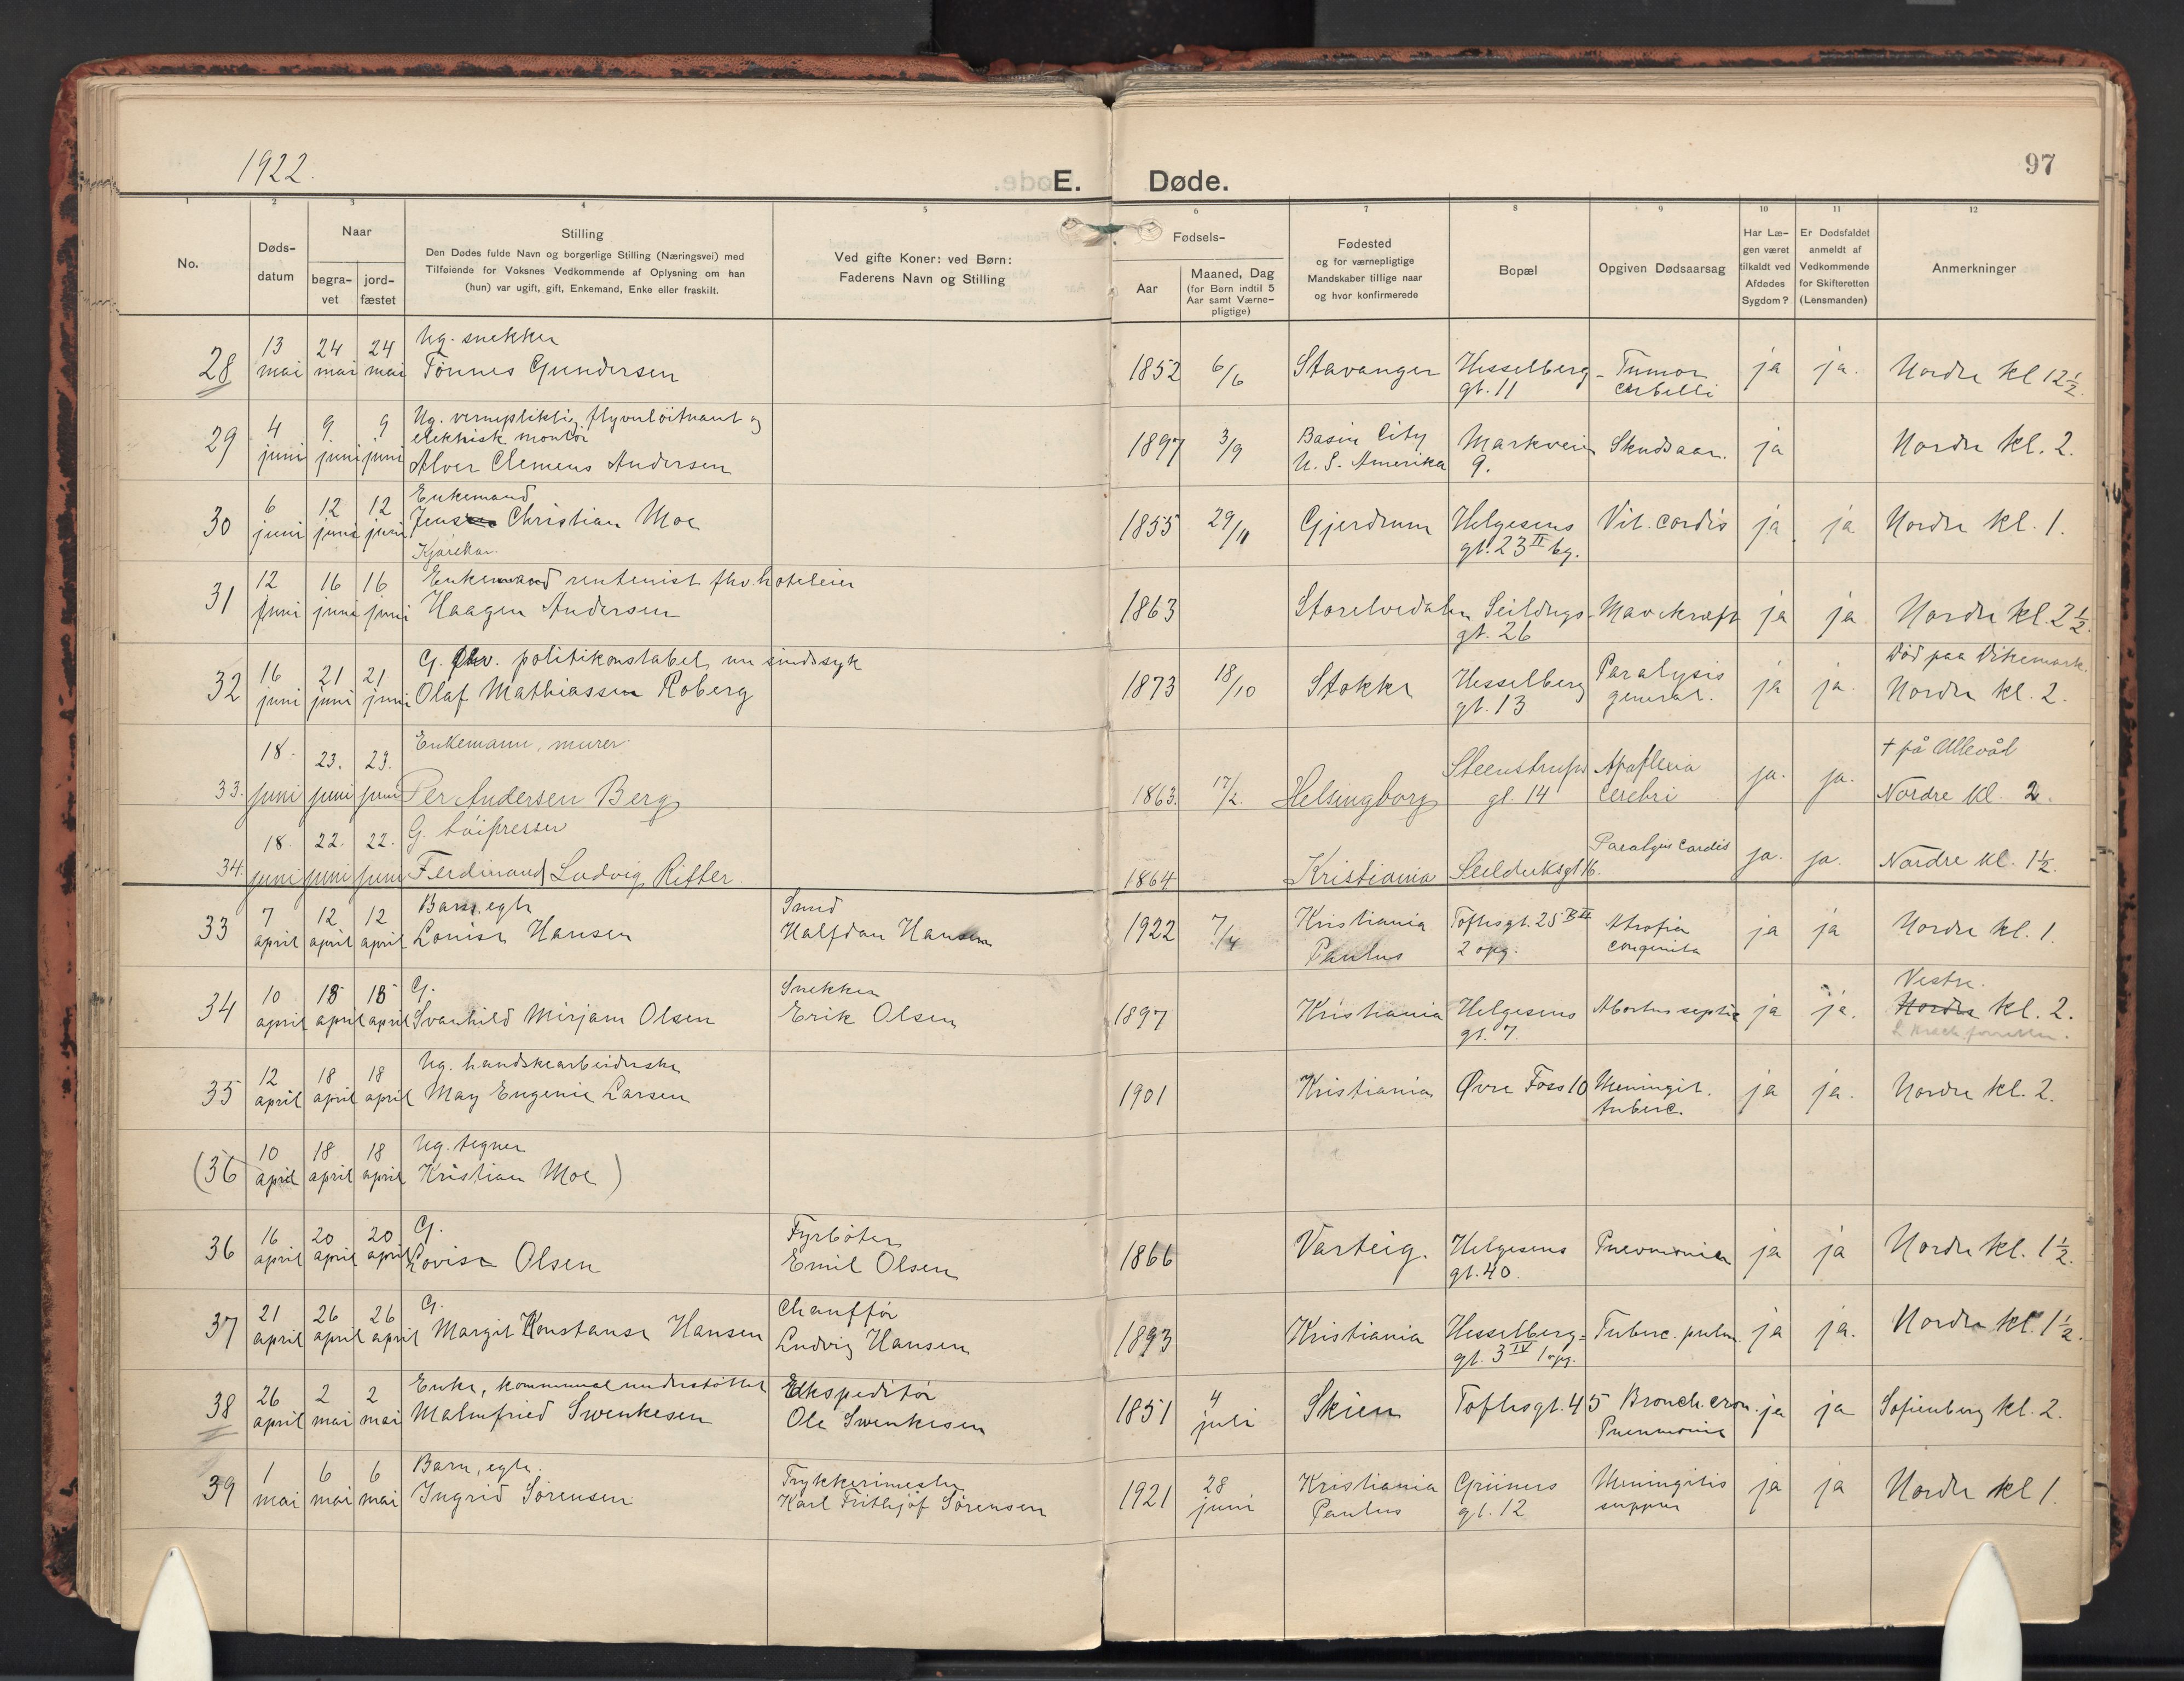 1922.
E. Døde.
97
1 2 3 4 5 6 7 8 9 10 11 12
No.
Døds-
datum
Naar
begra-
vet
jord-
fæstet
Stilling
Den Dødes fulde Navn og borgerlige Stilling (Næringsvei) med
Tilføiende for Voksnes Vedkommende af Oplysning om han
(hun) var ugift, gift, Enkemand, Enke eller fraskilt.
Ved gifte Koner: ved Børn:
Faderens Navn og Stilling
Fødsels-
Aar
Maaned, Dag
(for Børn indtil 5
Aar samt Værne-
pligtige)
Fødested
og for værnepligtige
Mandskaber tillige naar
og hvor konfirmerede
Bopæl
Opgiven Dødsaarsag
Har Læ-
gen været
tilkaldt ved
Afdødes
Sygdom?
Er Dødsfaldet
anmeldt af
Vedkommende
for Skifteretten
(Lensmanden)
Anmerkninger
13 24 24 Ug. snekker
28 mai mai mai Tønnes Gundersen 1852 6/6 Stavanger Hesselberg- Tumor ja ja. Nordre kl 12½.
gt. 11 cerbelli
4 9 9 Ug. vernepliktig flyverløitnant og
elektrisk montør
29 juni juni juni Alver Clemens Andersen 1897 3/9 Basin City Markveien Skudsaar. ja Nordre kl. 2.
U. S. Amerika 9.
6 12 12 Enkemand
30 juni juni juni Jens Christian Moe 1855 29/11 Gjerdrum Helgesens Vit. cordis ja ja Nordre kl. 1.
Kjørekar. gt. 23 II bg.
12 16 16 Enkemand rentenist fhv. hoteleier
31 juni juni juni Haagen Andersen 1863 Storelvedalen Seildugs- Mavekræft ja ja Nordre kl. 2½.
gt. 26
16 21 21 G. fhv. politikonstabel, nu sindssyk Død paa Dikemark.
32 juni juni juni Olaf Mathiassen Roberg 1873 18/10 Stokke Hesselberg Paralysis ja ja. Nordre kl. 2.
gt. 13 general.
18. 23. 23. Enkemann, murer. † på Ullevål
33. juni juni juni Per Andersen Berg 1863. 17/2. Helsingborg Steenstrups Apoplexia ja. ja. Nordre kl. 2.
gt. 14 cerebri
18. 22. 22. G. tøipresser
34. juni juni juni Ferdinand Ludvig Ritter. 1864 Kristiania Seilduksgt 16. Paralysis cordis ja. ja. Nordre kl. 1½.
7 12 12 Barn, egte Smed
33 april april april Louise Hansen Halfdan Hansen 1922 7/4 Kristiania Toftesgt. 25 B II Atrofia ja ja Nordre kl. 1.
Paulus 2 opg. congenita
10 15 15 G. Snekker Vestre.
34 april april april Svanhild Mirjam Olsen Erik Olsen 1897 Kristiania Helgesens Abortus septic ja ja. Nordre kl. 2.
gt. 7.
12 18 18 Ug. handskearbeiderske
35 april april april May Eugenie Larsen 1901 Kristiania Øvre Foss 10 Meningit. ja ja. Nordre kl. 2.
tuberc.
10 18 18 Ug. tegner
(36 april april april Kristian Moe)
16 20 20 G. Fyrbøter
36 april april april Lovise Olsen Emil Olsen 1866 Varteig. Helgesens Pneomonia ja ja Nordre kl. 1½.
gt. 40.
21 26 26 G. Chauffør
37 april april april Margit Konstanse Hansen Ludvig Hansen 1893 Kristiania Hesselberg- Tuberc. pulm. ja ja. Nordre kl. 1½.
gt. 3 IV 1 opg.
26 2 2 Enke, kommuneunderstøttet Ekspeditør
38 april mai mai Malmfried Swenkesen Ole Swenkesen 1851 4 juli Skien Toftesgt. 45 Bronch. cron. ja ja Sofienberg kl. 2.
Pneumonia
1 6 6 Barn, egte. Trykkerimester
39 mai mai mai Ingrid Sørensen Karl Frithjof Sørensen 1921 28 juni Kristiania Grüners Meningitis ja ja Nordre kl 1.
Paulus gt. 12 suppur